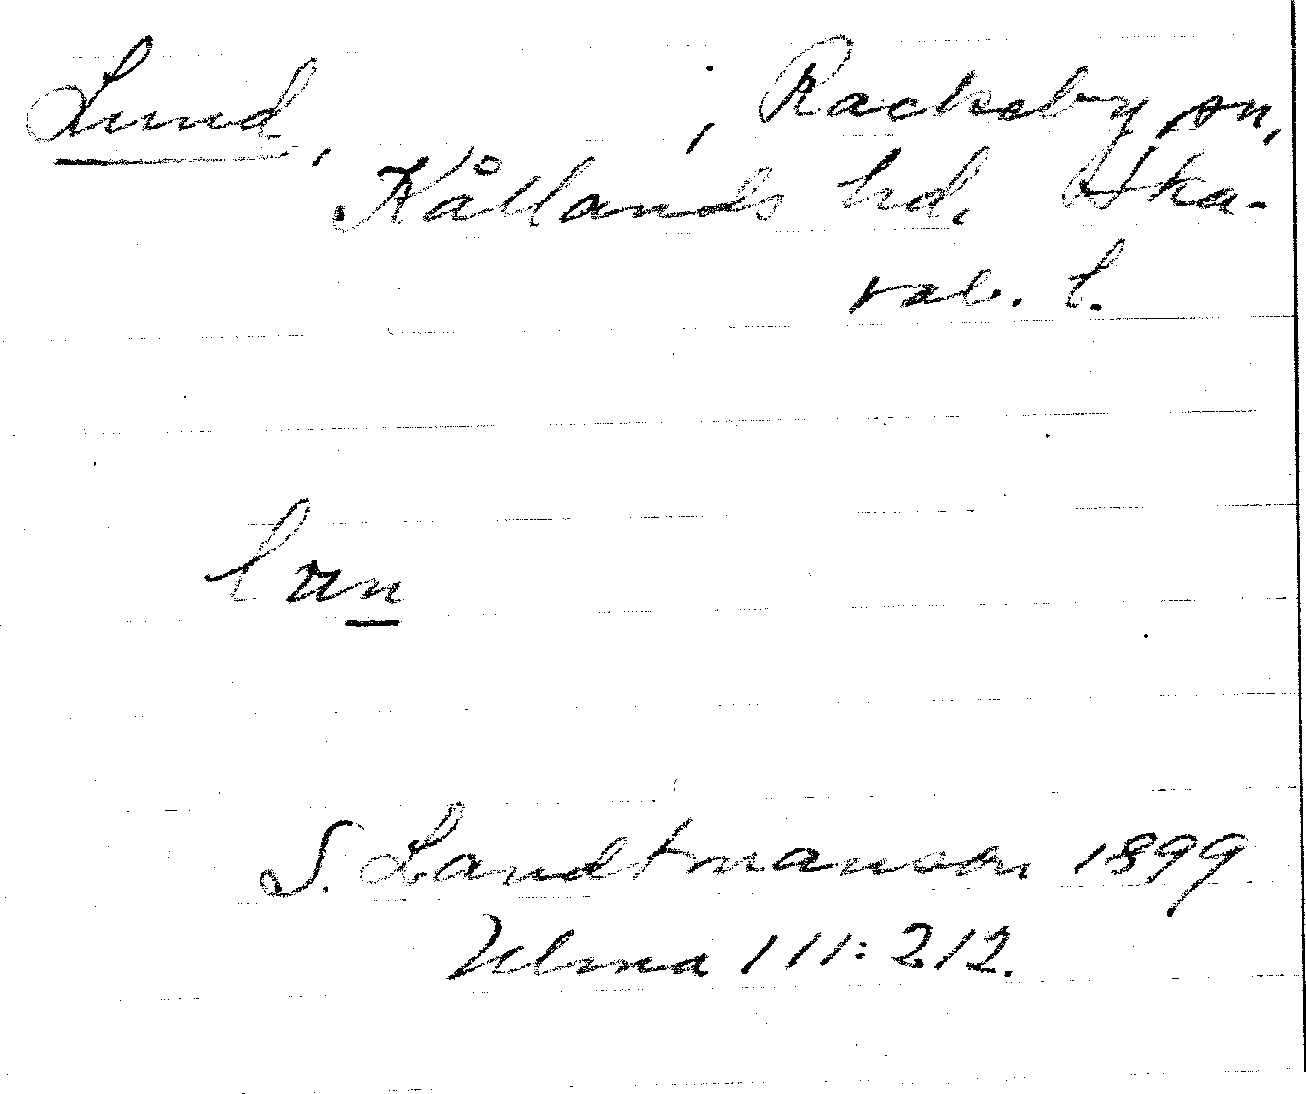 Lund, , Rackeby sn,
Kållands hd. Ska-
rab. l.
S. Landtmanson 1899
Ulma 111:212.